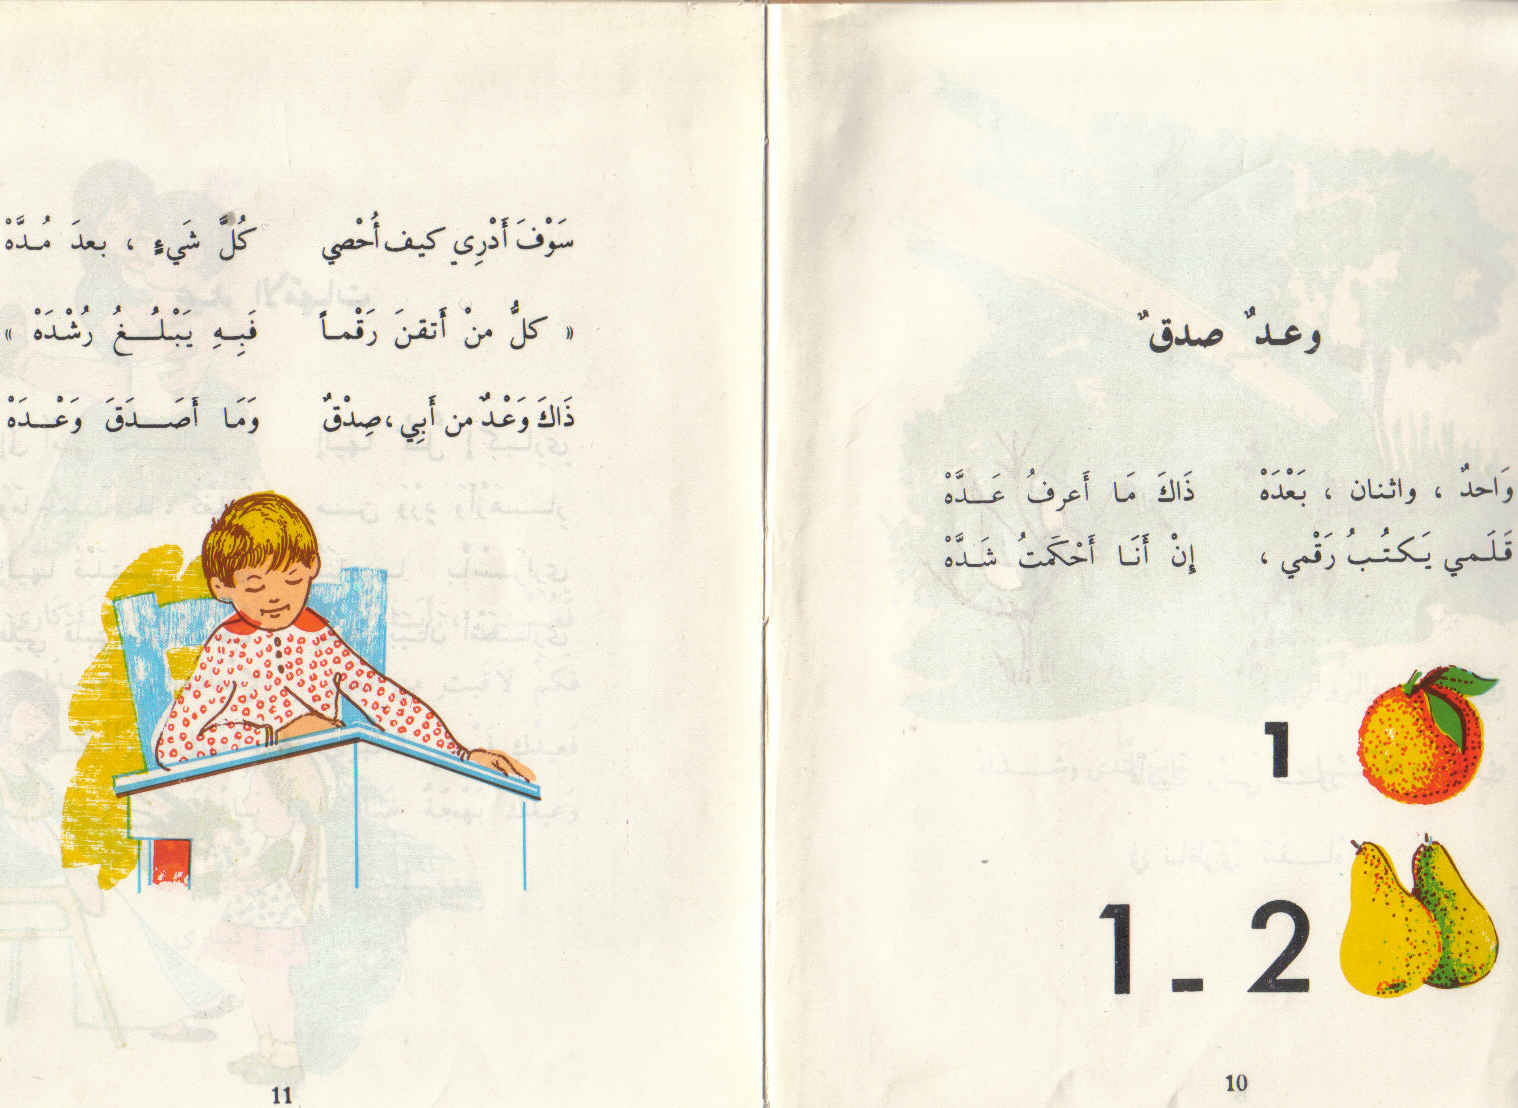 وعدٌ صدقٌ
وَاحدٌ ، واثنان ، بَعْدَهْ ذَاكَ مَا أَعرفُ عَدَّهْ
قَلَمي يَكتُبُ رَقْمي ، إِنْ أَنَا أَحْكَمتُ شَدَّهْ
1
1 - 2
10
سَوْفَ أَدْرِي كيف أُحْصي كُلَّ شَيءٍ ، بعدَ مُدَّهْ
« كلُّ منْ أَتقنَ رَقْماً فَبِهِ يَبْلُغُ رُشْدَهْ »
ذَاكَ وَعْدٌ من أَبِي ، صِدْقٌ وَمَا أَصَدَقَ وَعْدَهْ
11